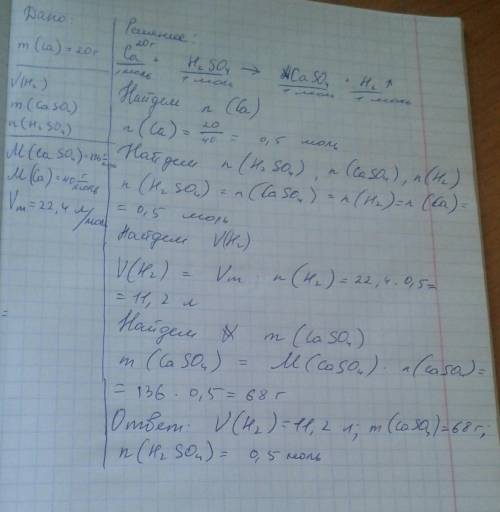 Дано:
m(Ca)=20г
V(H₂)
m(CaSO₄)
n(H₂SO₄)
M(CaSO₄)=
M(Ca)=40 г/моль
Vm=22,4 л/моль
Решение:
20г
Ca + H₂SO₄ → CaSO₄ + H₂↑
1 моль 1 моль 1 моль 1 моль
Найдем n(Ca)
n(Ca)= 20/40 = 0,5 моль
Найдем n(H₂SO₄), n(CaSO₄), n(H₂)
n(H₂SO₄)=n(CaSO₄)=n(H₂)=n(Ca)=
=0,5 моль
Найдем V(H₂)
V(H₂) = Vm · n(H₂)=22,4·0,5=
=11,2 л
Найдем m(CaSO₄)
m(CaSO₄) = M(CaSO₄)·n(CaSO₄)=
=136·0,5=68 г
Ответ: V(H₂)=11,2 л; m(CaSO₄)=68г;
n(H₂SO₄)= 0,5 моль